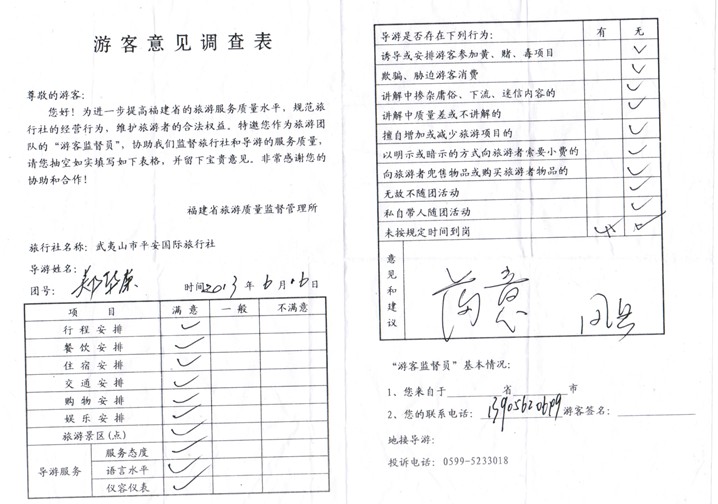 游客意见调查表
尊敬的游客：
您好！为进一步提高福建省的旅游服务质量水平，规范旅
行社的经营行为，维护旅游者的合法权益。特邀您作为旅游团
队的“游客监督员”，协助我们监督旅行社和导游的服务质量，
请您抽空如实填写如下表格，并留下宝贵意见。非常感谢您的
协助和合作！
福建省旅游质量监督管理所
旅行社名称：武夷山市平安国际旅行社
导游姓名：
团号： 时间2013年6月06日
项 目 满意 一般 不满意
行程安排 ✓
餐饮安排 ✓
住宿安排 ✓
交通安排 ✓
购物安排 ✓
娱乐安排 ✓
旅游景区(点) ✓
导游服务 服务态度 ✓
语言水平 ✓
仪容仪表 ✓
导游是否存在下列行为： 有 无
诱导或安排游客参加黄、赌、毒项目 ✓
欺骗、胁迫游客消费 ✓
讲解中掺杂庸俗、下流、迷信内容的 ✓
讲解中质量差或不讲解的 ✓
擅自增加或减少旅游项目的 ✓
以明示或暗示的方式向旅游者索要小费的 ✓
向旅游者兜售物品或购买旅游者物品的 ✓
无故不随团活动 ✓
私自带人随团活动 ✓
未按规定时间到岗
意见和建议 满意
“游客监督员”基本情况：
1、您来自于 省 市
2、您的联系电话： 游客签名：
地接导游：
投诉电话：0599-5233018